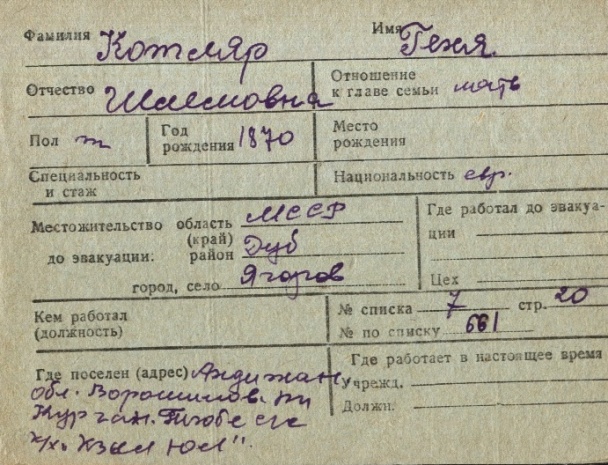 Фамилия Котляр Имя Геня
Отчество Шлемовна Отношение к главе семьи мать
Пол ж Год рождения 1870 Место рождения
Специальность и стаж Национальность евр.
Местожительство до эвакуации: область (край) МССР Где работал до эвакуации
район Дуб
город, село Ягорлов Цех
Кем работал (должность) № списка 7 стр. 20
№ по списку 661
Где поселен (адрес) Андижан Где работает в настоящее время
обл. Ворошилов. Учрежд.
Курган. Тюбе с/с Должн.
к/х. Кзыл Юл".